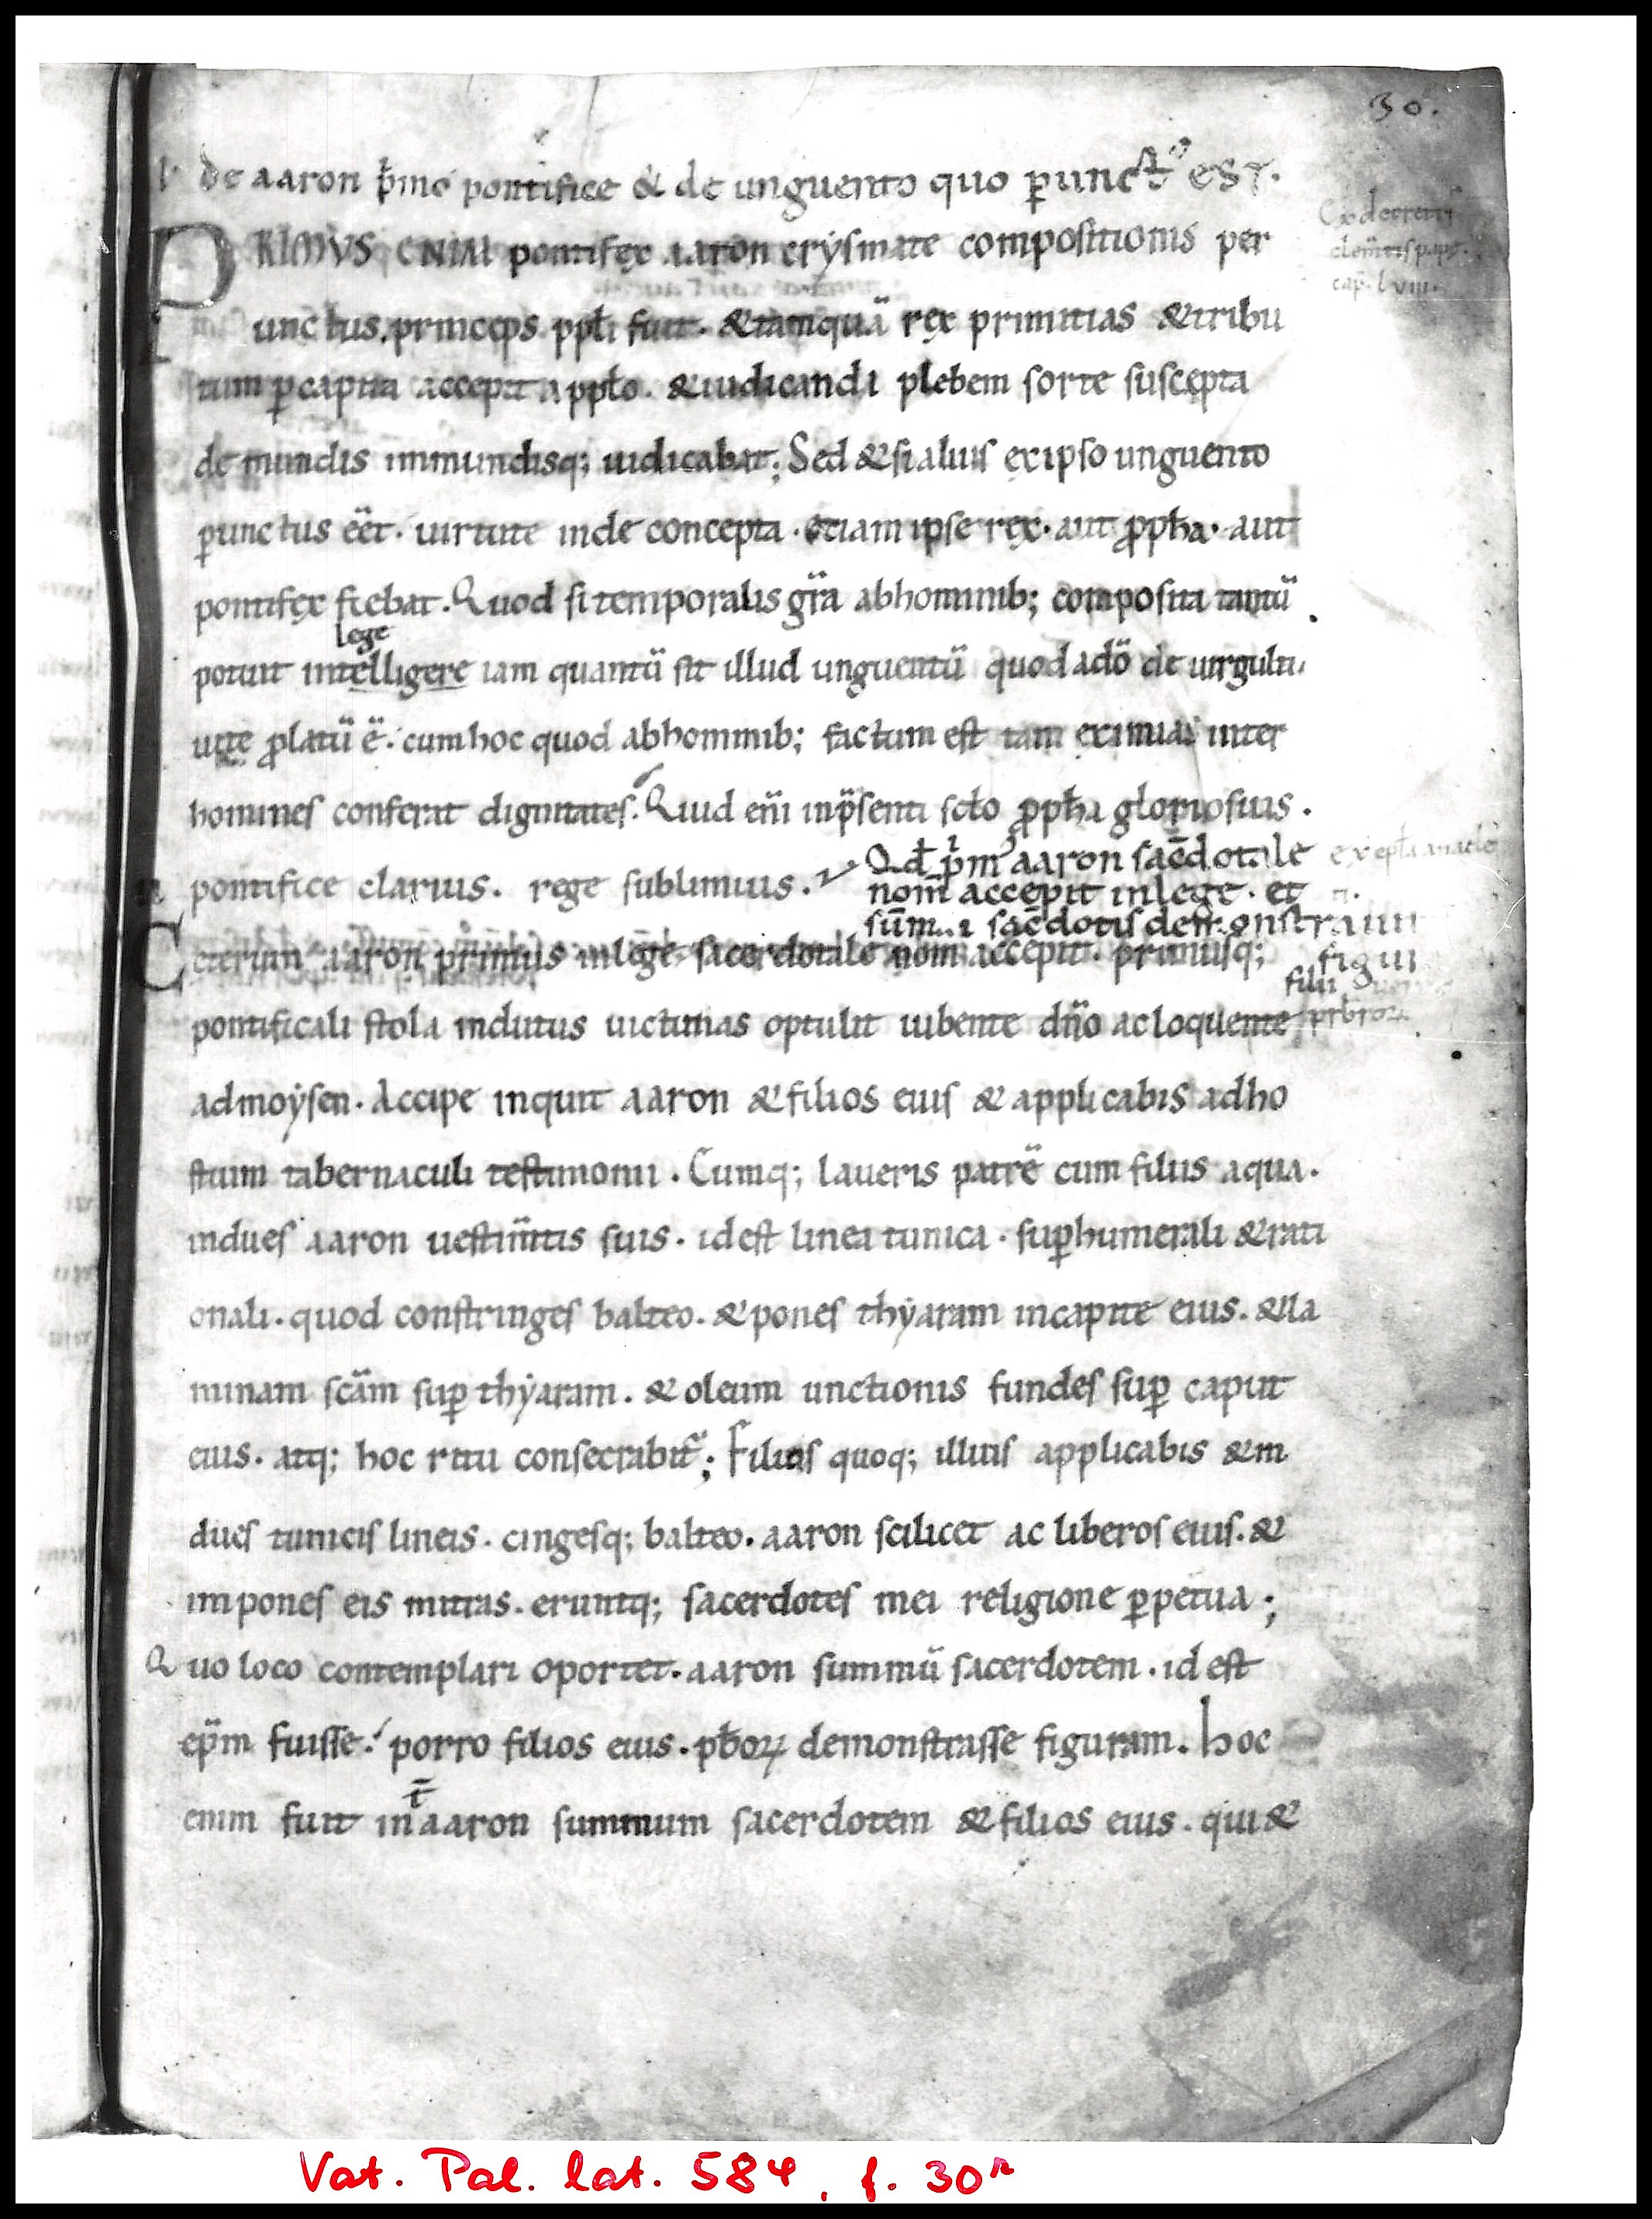 30.
de aaron p̄mo pontifice & de unguento quo ꝑunct᷒ est.
Ex decretis
clem̄tis pape.
cap̄. lviii.
PRIMVS ENIM pontifex aaron crysmate compositionis per
unctus. princeps pp̄li fuit. & tanquā rex primitias & tribu
tum ꝑ capita accepit a pp̄lo. & iudicandi plebem sorte suscepta
de mundis immundisq; iudicabat; Sed & si alius ex ipso unguento
ꝑunctus eēt. uirtute inde concepta. etiam ipse rex. aut ꝓph̄a. aut
pontifex fiebat. Quod si temporalis gr̄a ab hominib; composita tantū
lege
potuit intelligere iam quantū sit illud unguentū quod a dō de uirgulti
uite ꝓlatū ē. cum hoc quod ab hominib; factum est tam eximias inter
homines conferat dignitates. Quid eni͂ in p̄senti sc̄lo ꝓph̄a gloriosius.
pontifice clarius. rege sublimius.
Qd̄ p̄m᷒ aaron sac̄dotale
nom̄ accepit in lege. et
sūmi sac̄dotis demonstrauit
figu
filii
prb̄roꝝ
ex epl̄a anacle
Ceterum aaron primus in lege sacerdotale nom̄ accepit. primusq;
pontificali stola indutus uictimas optulit iubente dn̄o ac loquente
ad moysen. Accipe inquit aaron & filios eius & applicabis ad ho
stium tabernaculi testimonii. Cumq; laueris patrē cum filiis aqua.
indues aaron uestim̄tis suis. id est linea tunica. suꝑhumerali & rati
onali. quod constringes balteo. & pones thyaram in capite eius. & la
minam sc̄am suꝑ thyaram. & oleum unctionis fundes suꝑ caput
eius. atq; hoc ritu consecrabit᷒; Filios quoq; illius applicabis & in
dues tunicis lineis. cingesq; balteo. aaron scilicet ac liberos eius. &
impones eis mitras. eruntq; sacerdotes mei religione ꝑpetua;
Quo loco contemplari oportet. aaron summū sacerdotem. id est
ep̄m fuisse. porro filios eius. pb̄oꝝ demonstrasse figuram. hoc
t̄
enim fuit in aaron summum sacerdotem & filios eius. qui &
Vat. Pal. lat. 584, f. 30r